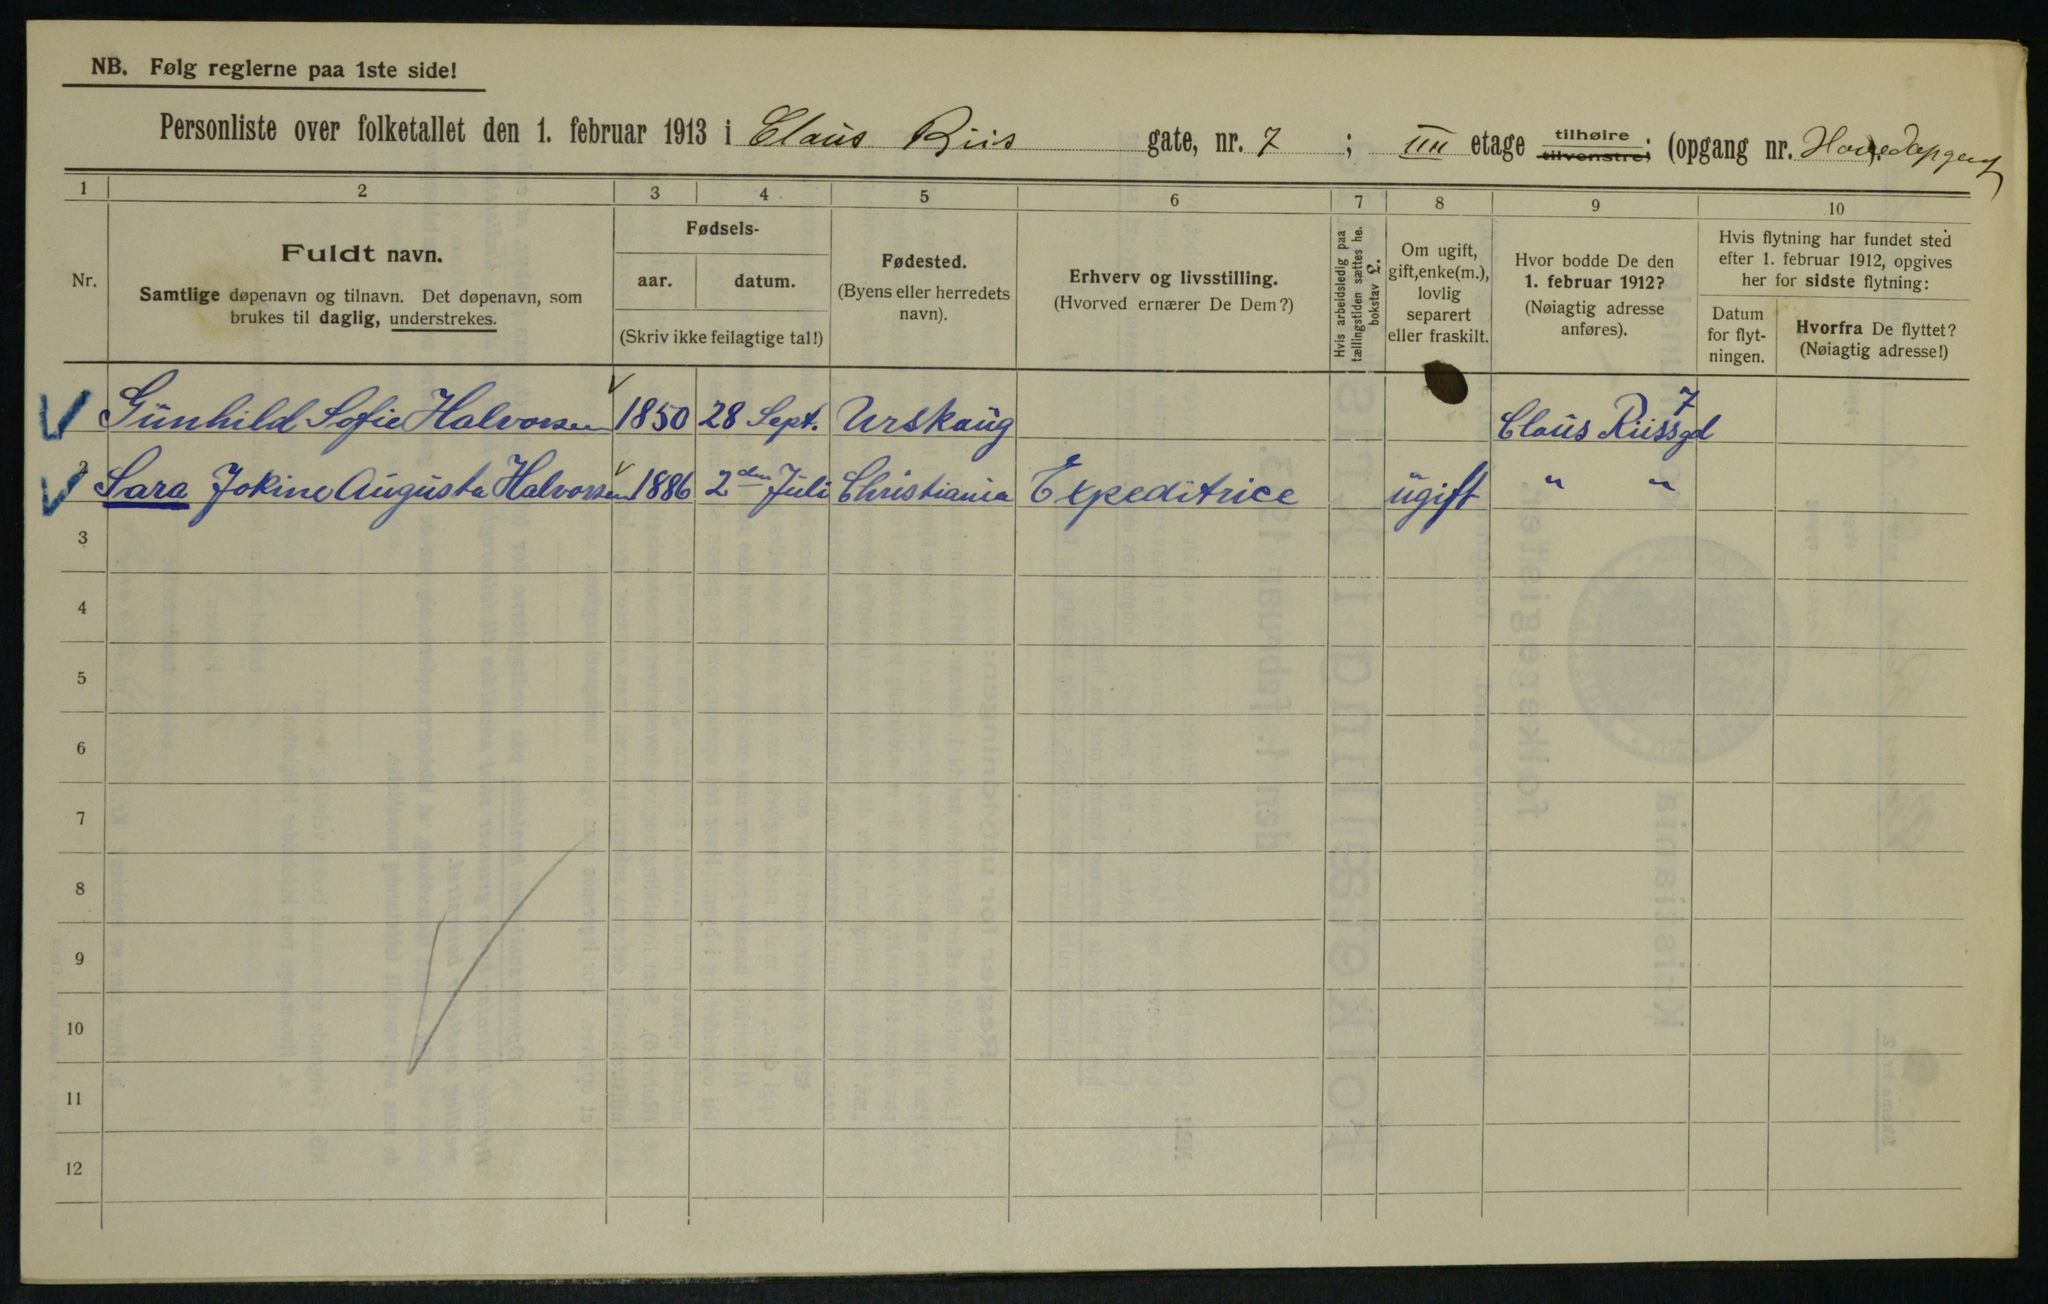 NB. Følg reglerne paa 1ste side!
Personliste over folketallet den 1. februar 1913 i Claus Riis gate, nr. 7 ; IIII etage tilhøire tilvenstre; (opgang nr. Hovedopgang).
1 2 3 4 5 6 7 8 9 10
Nr.
Fuldt navn.
Samtlige døpenavn og tilnavn. Det døpenavn, som
brukes til daglig, understrekes.
Fødsels-
aar. datum.
(Skriv ikke feilagtige tal!)
Fødested.
(Byens eller herredets
navn).
Erhverv og livsstilling.
(Hvorved ernærer De Dem?)
Hvis arbeidsledig paa
tællingstiden sættes he.
bokstav L.
Om ugift,
gift, enke(m.),
lovlig
separert
eller fraskilt.
Hvor bodde De den
1. februar 1912?
(Nøiagtig adresse
anføres).
Hvis flytning har fundet sted
efter 1. februar 1912, opgives
her for sidste flytning:
Datum
for flyt-
ningen.
Hvorfra De flyttet?
(Nøiagtig adresse!)
Gunhild Sofie Halvorsen 1850 28 Sept. Urskaug Claus Riissgd 7
2 Sara Jokine Augusta Halvorsen 1886 2den Juli Christiania Expeditrice ugift " "
3
4
5
6
7
8
9
10
11
12